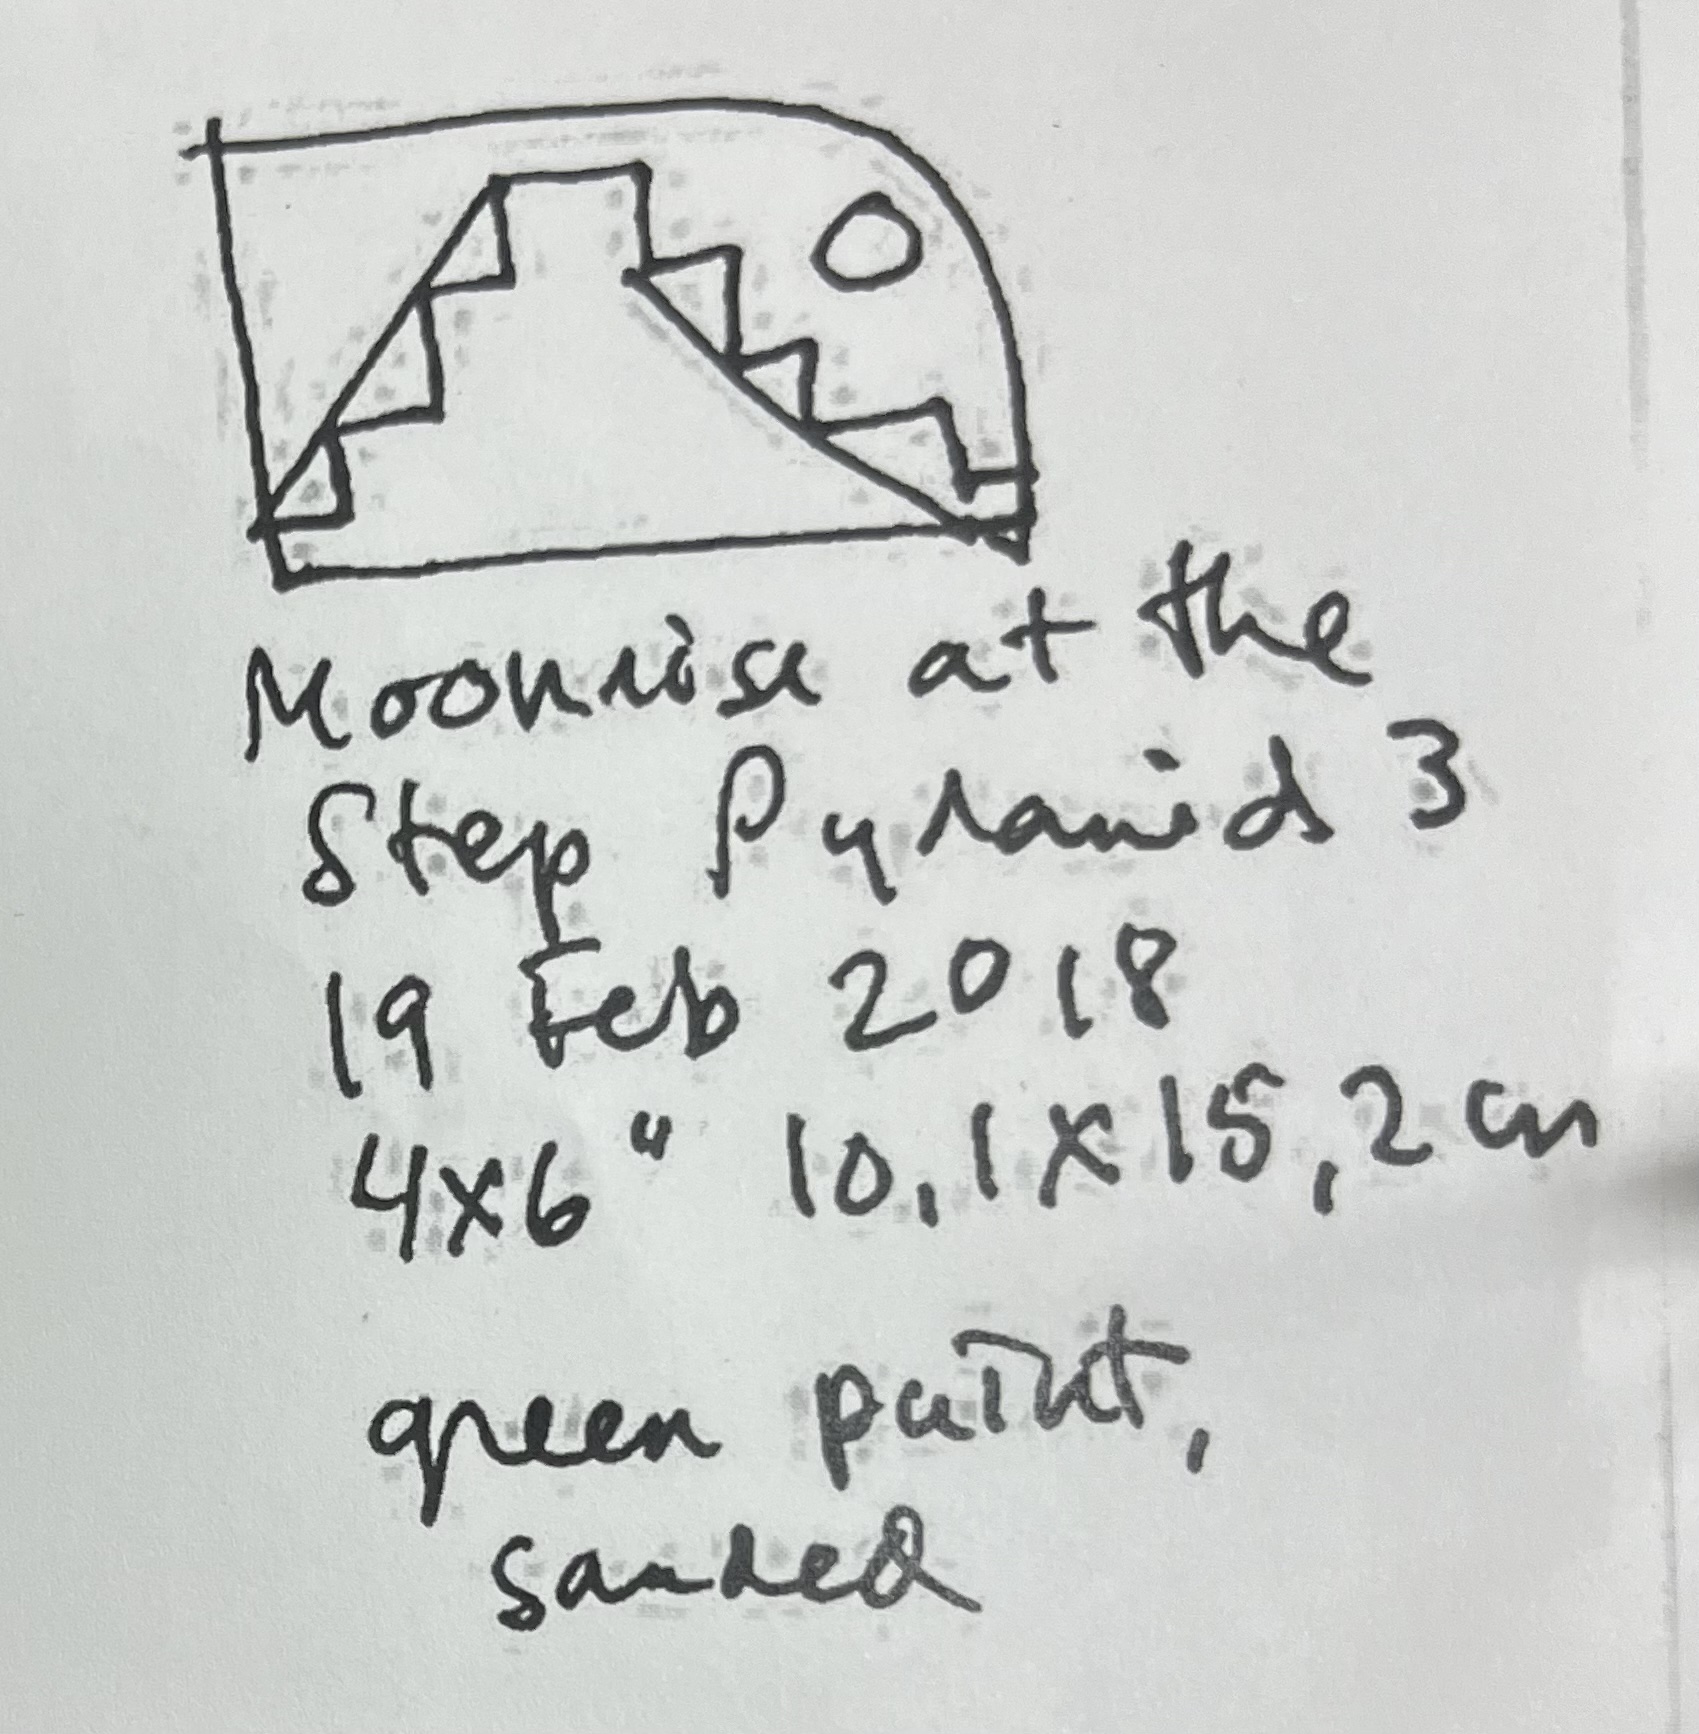 Moonrise at the
Step Pyramid 3
19 Feb 2018
4x6" 10,1x15,2 cm
green paint,
sanded